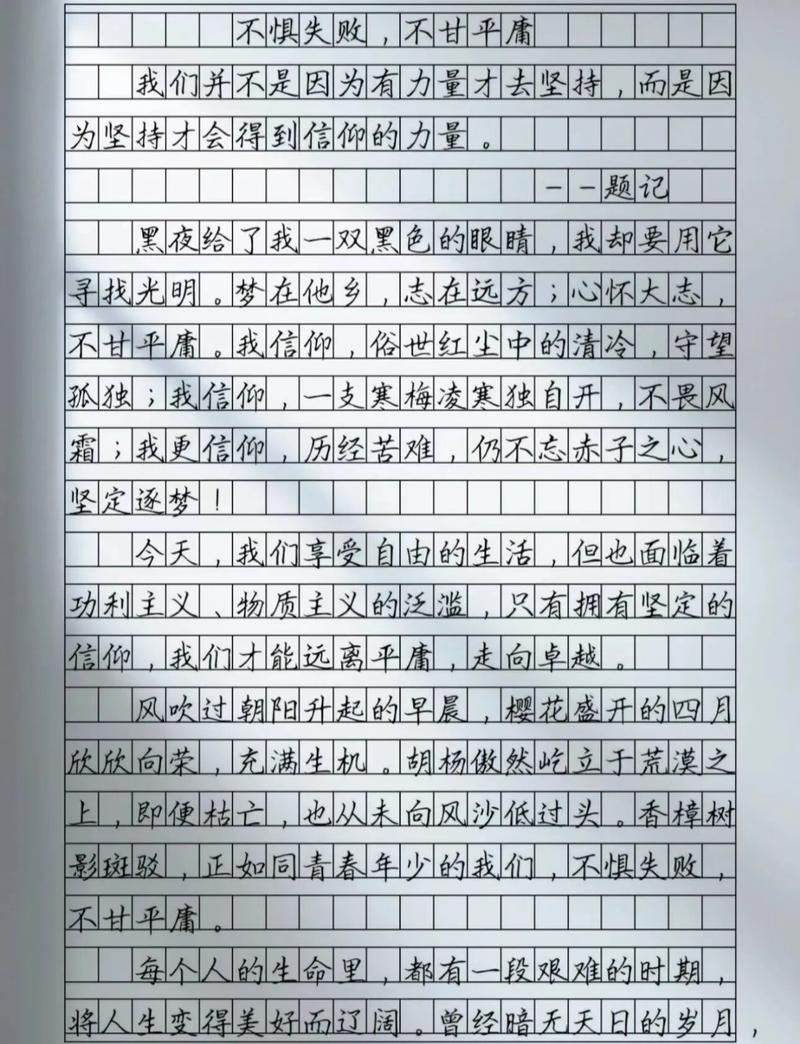 不惧失败，不甘平庸
我们并不是因为有力量才去坚持，而是因
为坚持才会得到信仰的力量。
——题记
黑夜给了我一双黑色的眼睛，我却要用它
寻找光明。梦在他乡，志在远方；心怀大志，
不甘平庸。我信仰，俗世红尘中的清冷，守望
孤独；我信仰，一支寒梅凌寒独自开，不畏风
霜；我更信仰，历经苦难，仍不忘赤子之心，
坚定逐梦！
今天，我们享受自由的生活，但也面临着
功利主义、物质主义的泛滥，只有拥有坚定的
信仰，我们才能远离平庸，走向卓越。
风吹过朝阳升起的早晨，樱花盛开的四月
欣欣向荣，充满生机。胡杨傲然屹立于荒漠之
上，即便枯亡，也从未向风沙低过头。香樟树
影斑驳，正如同青春年少的我们，不惧失败，
不甘平庸。
每个人的生命里，都有一段艰难的时期，
将人生变得美好而辽阔。曾经暗无天日的岁月，